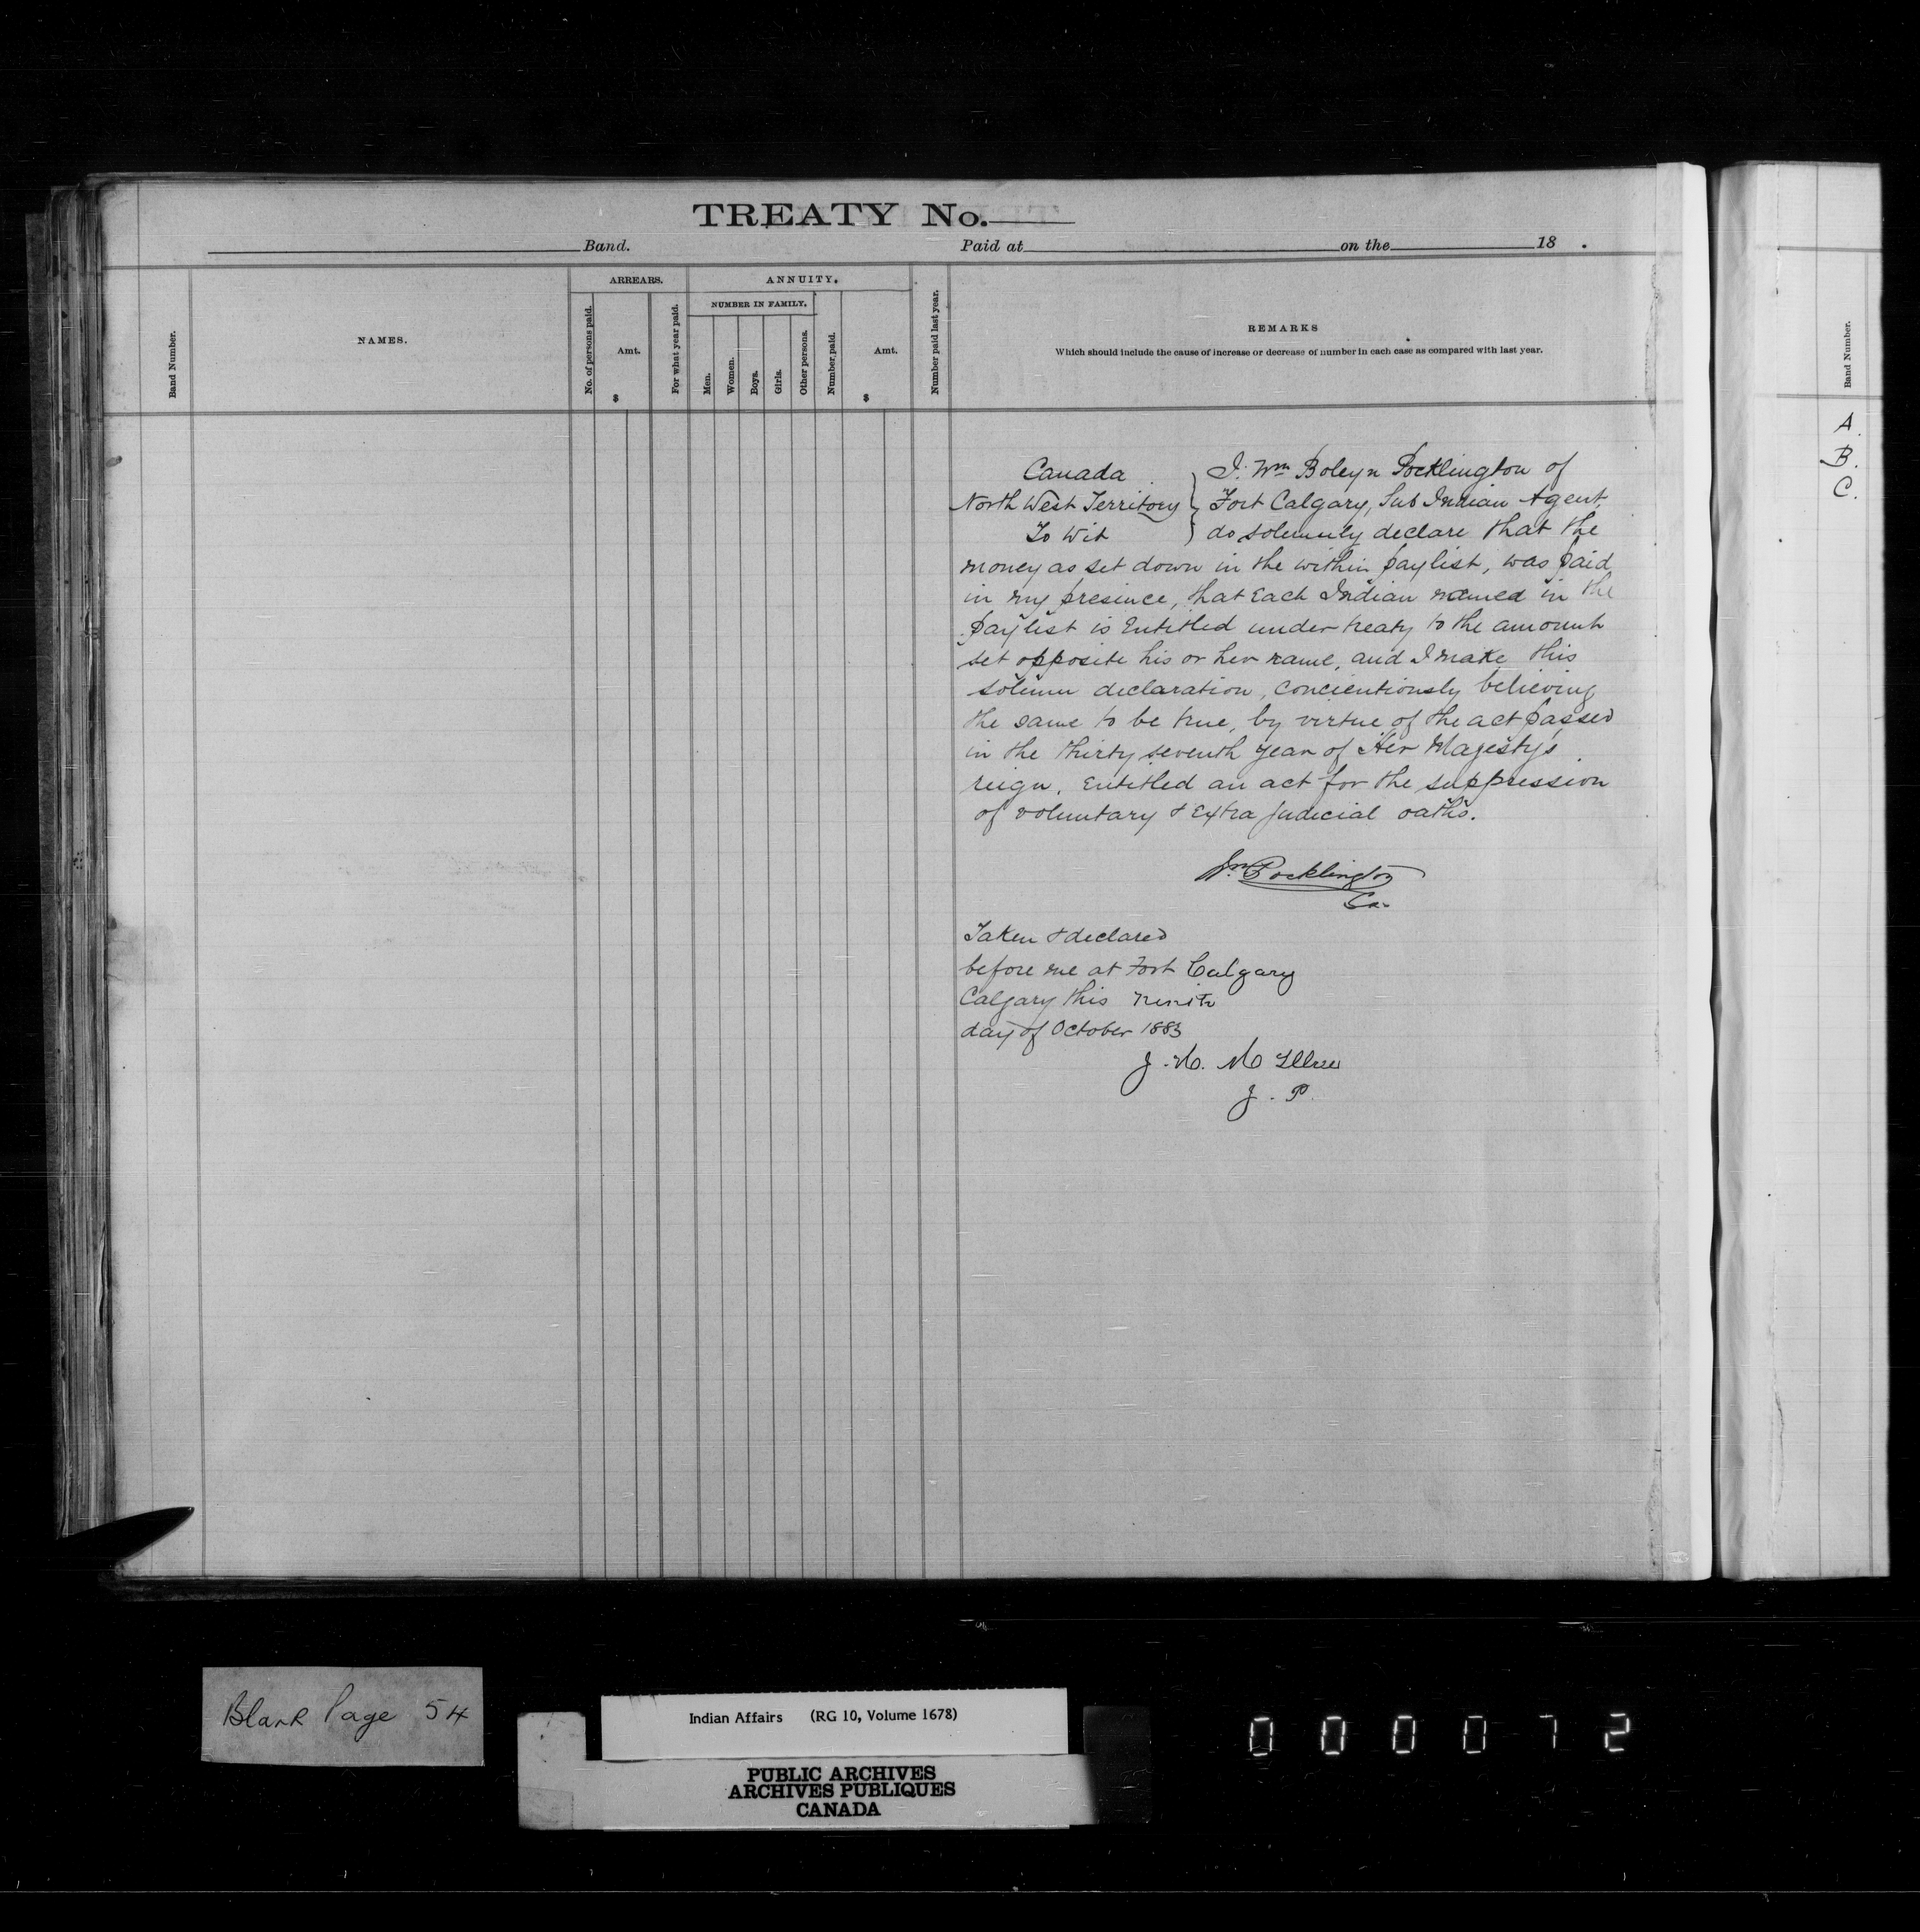 TREATY No.
Band. Paid at on the 18 .
Band Number.
NAMES.
ARREARS.
No. of persons paid.
Amt.
$
For what year paid.
ANNUITY.
NUMBER IN FAMILY.
Men.
Women.
Boys.
Girls.
Other persons.
Number paid.
Amt.
$
Number paid last year.
REMARKS
Which should include the cause of increase or decrease of number in each case as compared with last year.
Canada
North West Territory
To Wit
I. Wm Boleyn Pocklington of
Fort Calgary, Sub Indian Agent,
do solemnly declare that the
money as set down in the within paylist, was paid
in my presence, that Each Indian named in the
paylist is Entitled under treaty to the amount
set opposite his or her name, and I make this
solemn declaration, concientiously believing
the same to be true, by virtue of the act passed
in the thirty seventh year of Her Majesty's
reign. Entitled an act for the suppression
of voluntary & Extra judicial oaths.
Wm Pocklington
Taken & declared
before me at Fort Calgary
Calgary this
day of October 1883
J. P.
Band Number.
A.
B.
C.
Blank Page 54
Indian Affairs (RG 10, Volume 1678)
PUBLIC ARCHIVES
ARCHIVES PUBLIQUES
CANADA
000072